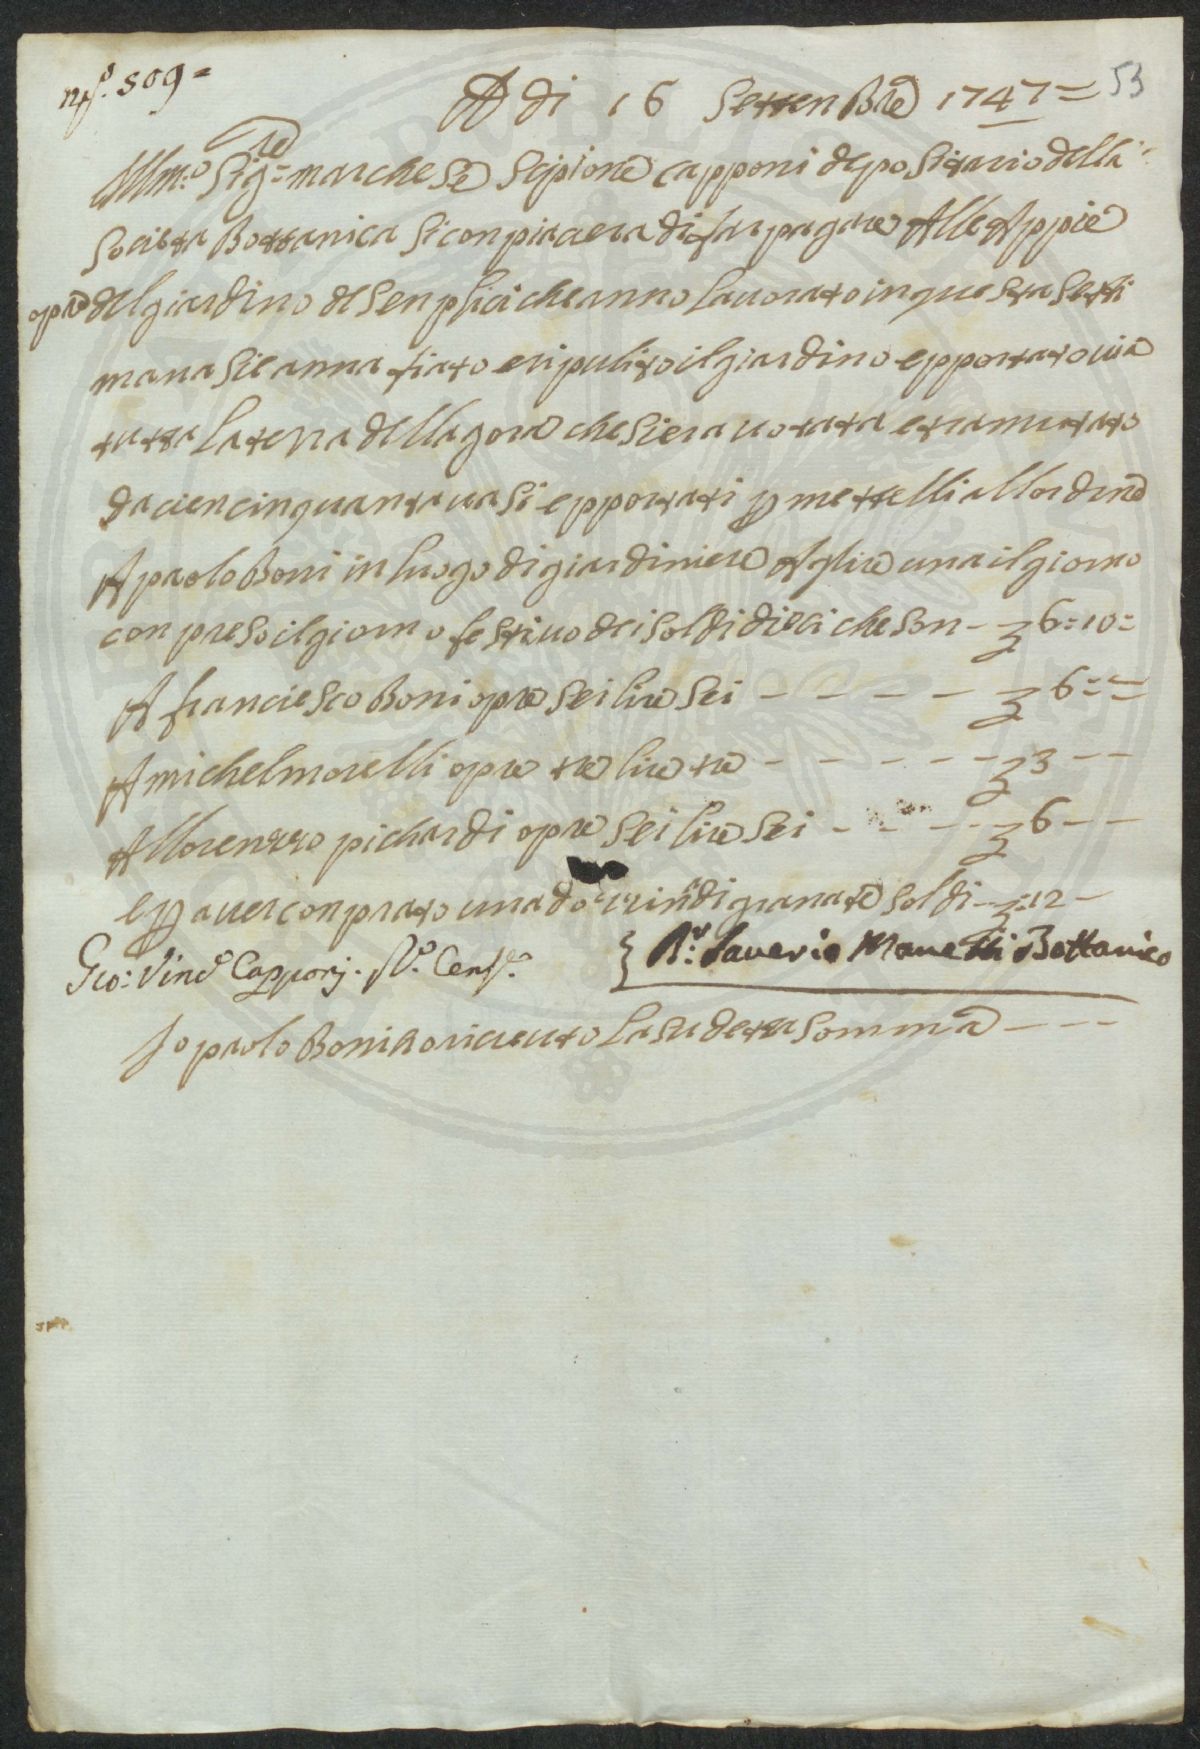 nº. 509 =
53
A di 16 Settenbre 1747 =
Illm:o Sig:re marchese Scipione capponi depositario della
Societa Bottanica Si conpiacera di far pagare Alle Appie
opre del giardino de Senplici che anno Lavorato in questa Setti
mana Si è anna fiato e ripulito il giardino e pportato via
tutta La terra della gora che Si era votata e tramutato
da cien cinquanta vasi e pportati p mettelli all ordine
A paolo Boni in luogo di giardiniere A lire una il giorno
conpreso il giorno festivo dei Soldi dieci che Son - 6=10=
A franciesco Boni opre Sei lire Sei - - - - 6 = =
A michel morelli opre tre lire tre - - - - - - 3 - -
A llorenzo pichardi opre Sei lire Sei - - - - - 6 - -
e p aver conprato una dozzina di granate Soldi - - :12 -
Gio: Vinc.o Capponj. Cens.e
D.r Saverio Manetti Bottanico
Io paolo Boni ho riceuto La Su detta Somma - - - -